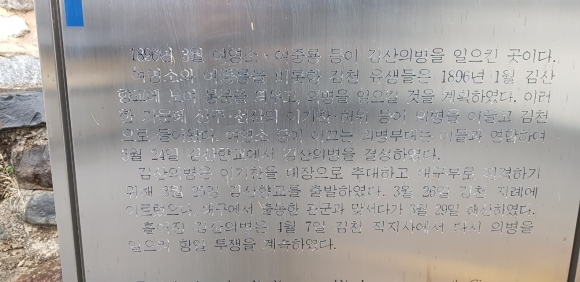 1896년 3월 여영소·여중룡 등이 김산의병을 일으킨 곳이다.
여영소와 여중룡을 비롯한 김천 유생들은 1896년 1월 김산
향교에 모여 통문을 돌리고, 의병을 일으킬 것을 계획하였다. 이러
한 가운데 상주·선산의 이기찬·허위 등이 의병을 이끌고 김천
으로 들어왔다. 여영소 등이 이끄는 의병부대는 이들과 연합하여
3월 24일 김산향교에서 김산의병을 결성하였다.
김산의병은 이기찬을 대장으로 추대하고 대구부로 진격하기
위해 3월 25일 김산향교를 출발하였다. 3월 26일 김천 지례에
이르렀으나 대구에서 출동한 관군과 맞서다가 3월 29일 해산하였다.
흩어진 김산의병은 4월 7일 김천 직지사에서 다시 의병을
일으켜 항일 투쟁을 계속하였다.